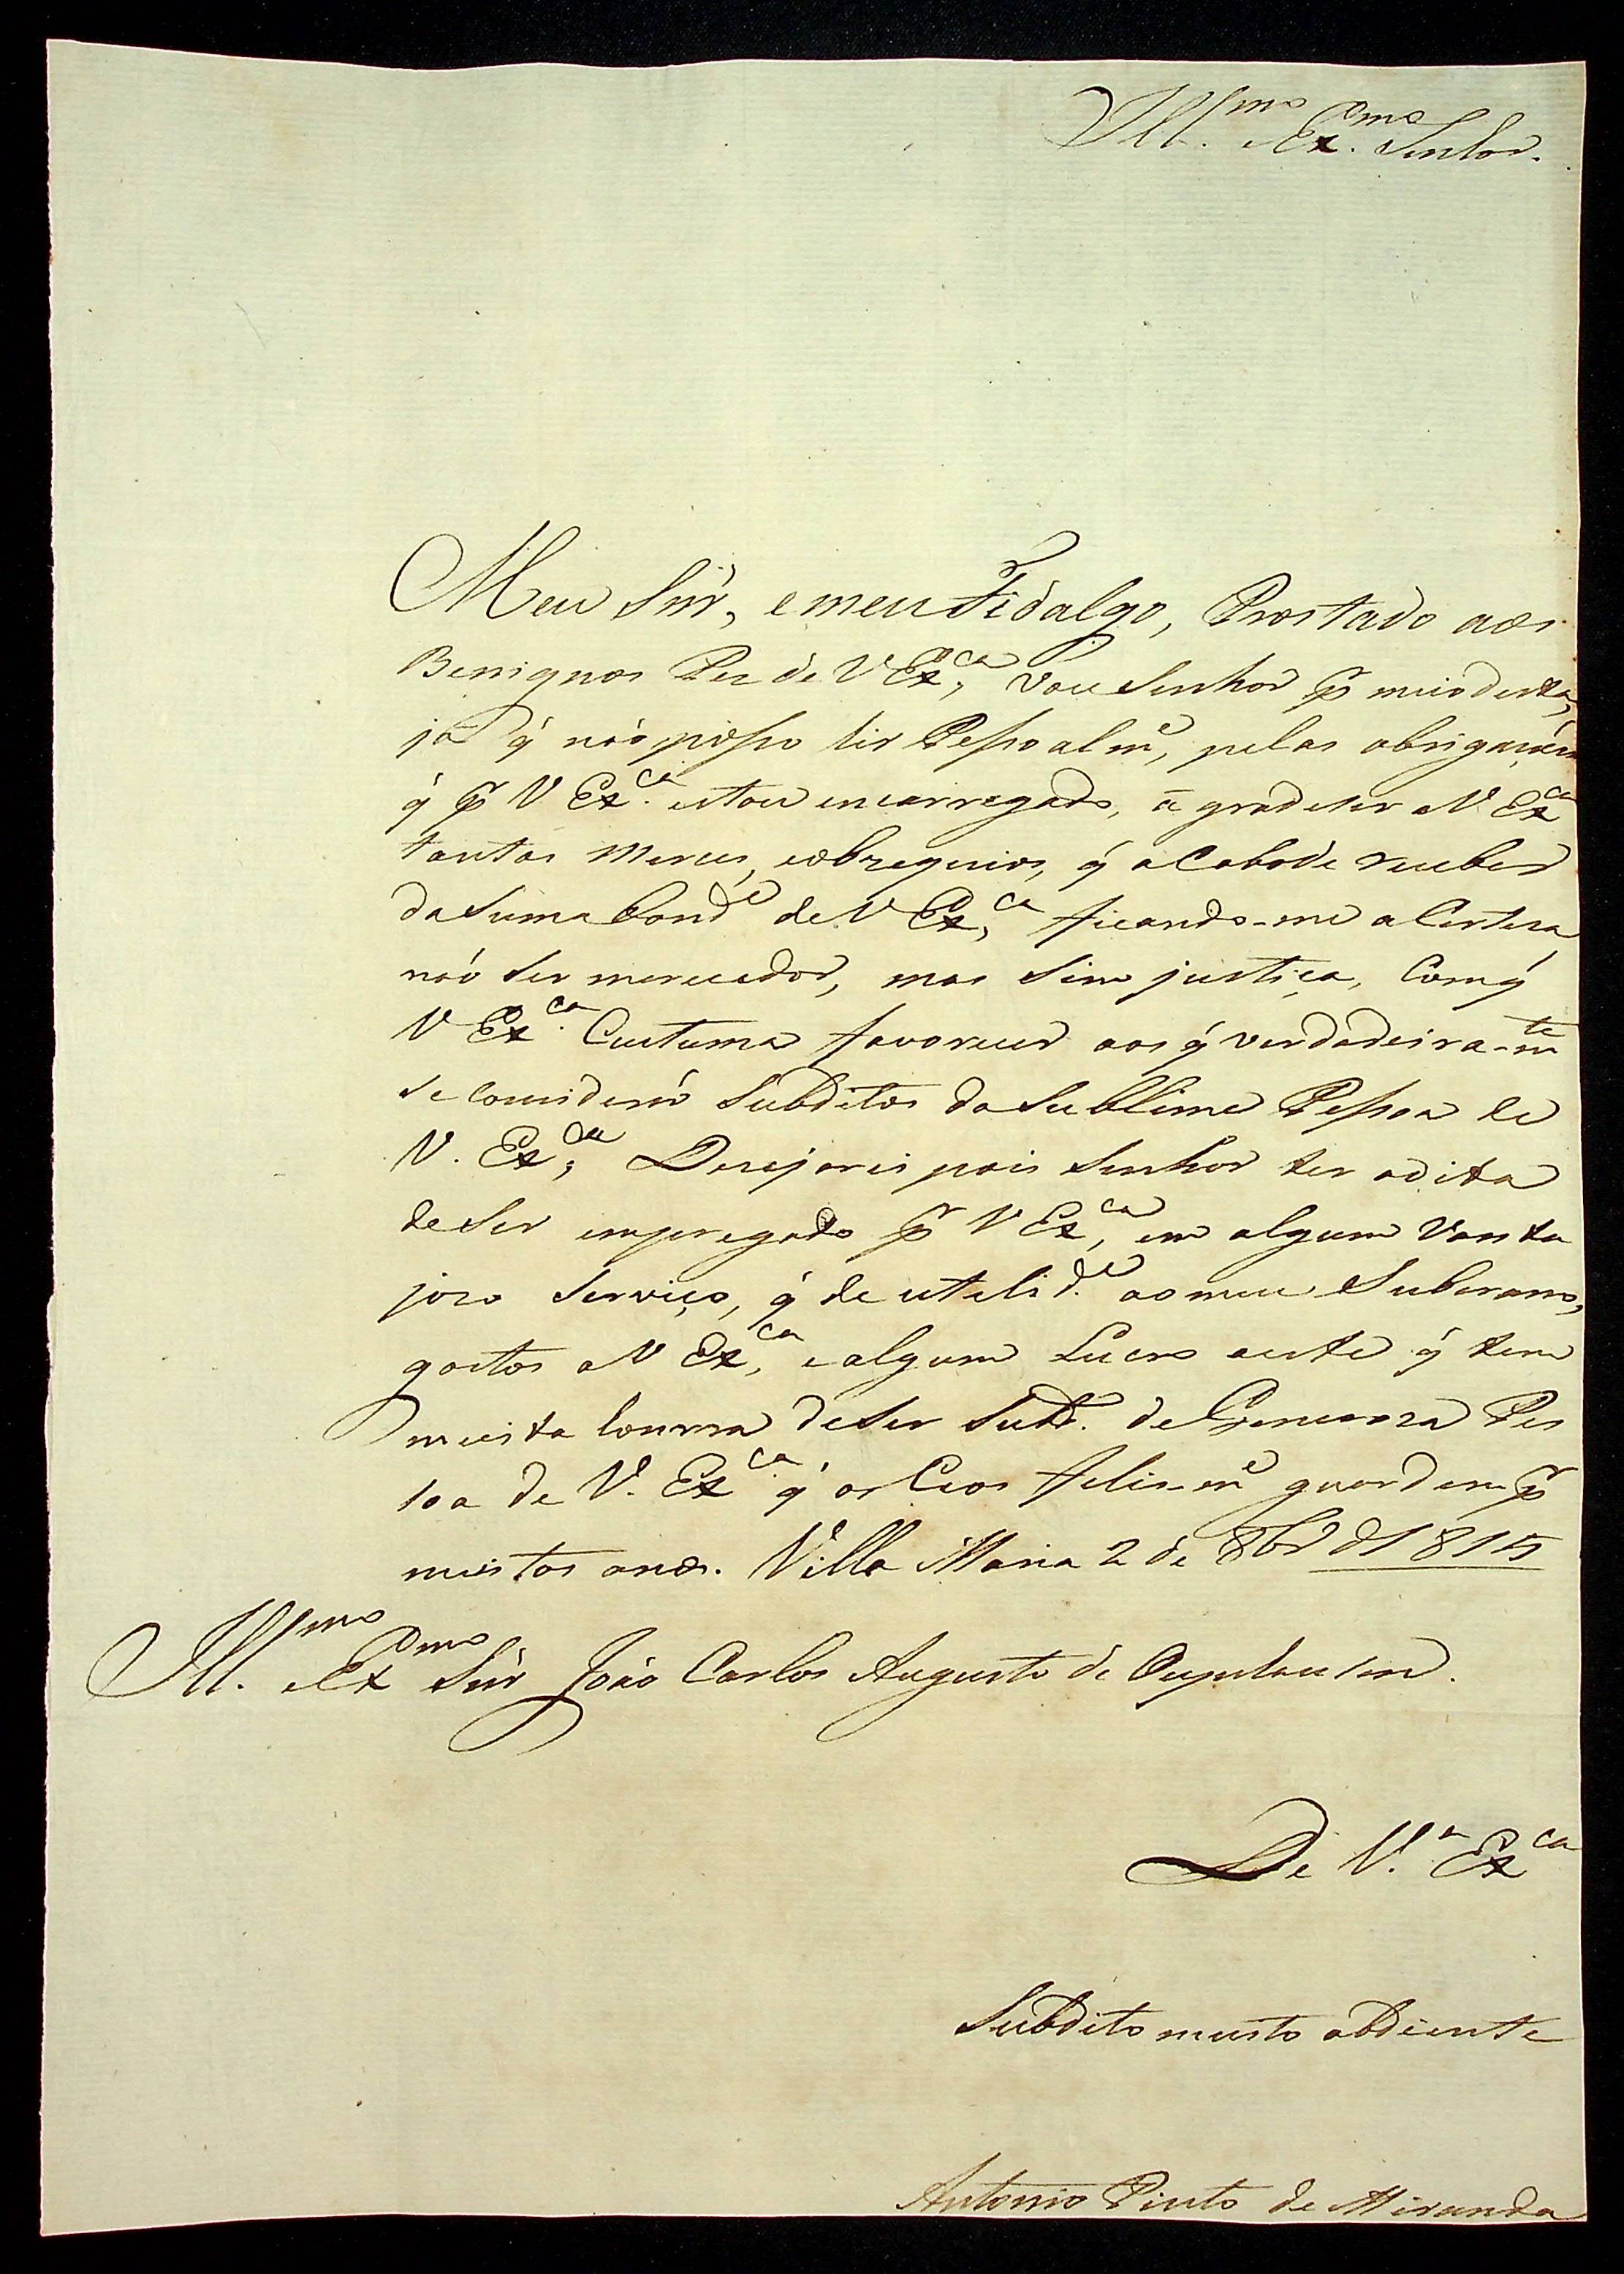 Ill.mo e Ex.mo Senhor.
Meu Snr̃, e meu Fidalgo, Prostado aos
Benignos Pes de V Ex.ca, vou Senhor p̃r meio desta,
já q̃ não posso hir Pessoalm.e, pelas obrigaçoens
q̃ p̃r V Ex.ca estou encarregado, a gradeser a V. Ex.ca
tantas merces, eobzequios, q̃ aCabo de receber
da Suma bond.e de V Ex.ca, ficando-me aCerteza
não Ser merecedor, mas Sim justiça, Comq̃
V Ex.ca Custuma favorecer aos q̃ verdadeira-m.te
se considerão Subditos da Sublime Pessoa de
V. Ex.ca, Desejarei pois Senhor ter adita
de Ser empregado p̃r V Ex.ca, em algum Vanta
jozo Serviço, q̃ de utelid.e ao meu Suberano,
gostos a V Ex.ca, e algum Lucro a este q̃ tem
muita honrra de Ser Subd.o de Generoza Pes
soa de V. Ex.ca q̃ os Ceos felism.e guardem p̃r
muitos anos. Villa Maria 2 de 8br.o d 1815
Ill.mo e Ex.mo Snr̃ João Carlos Augusto de Oeynhausen.
De V.a Ex.ca
Subdito muito obdiente
Antonio Pinto de Miranda